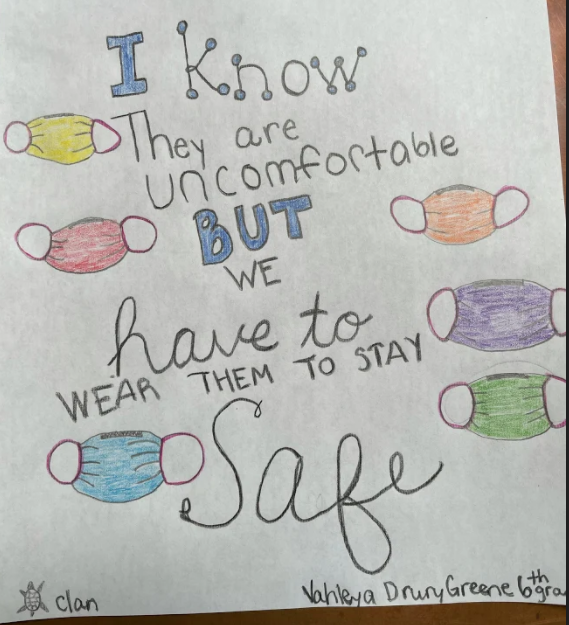 I Know
They are
uncomfortable
BUT
WE
have to
WEAR THEM TO STAY
Safe
clan
Vahleya Drury Greene 6th gra